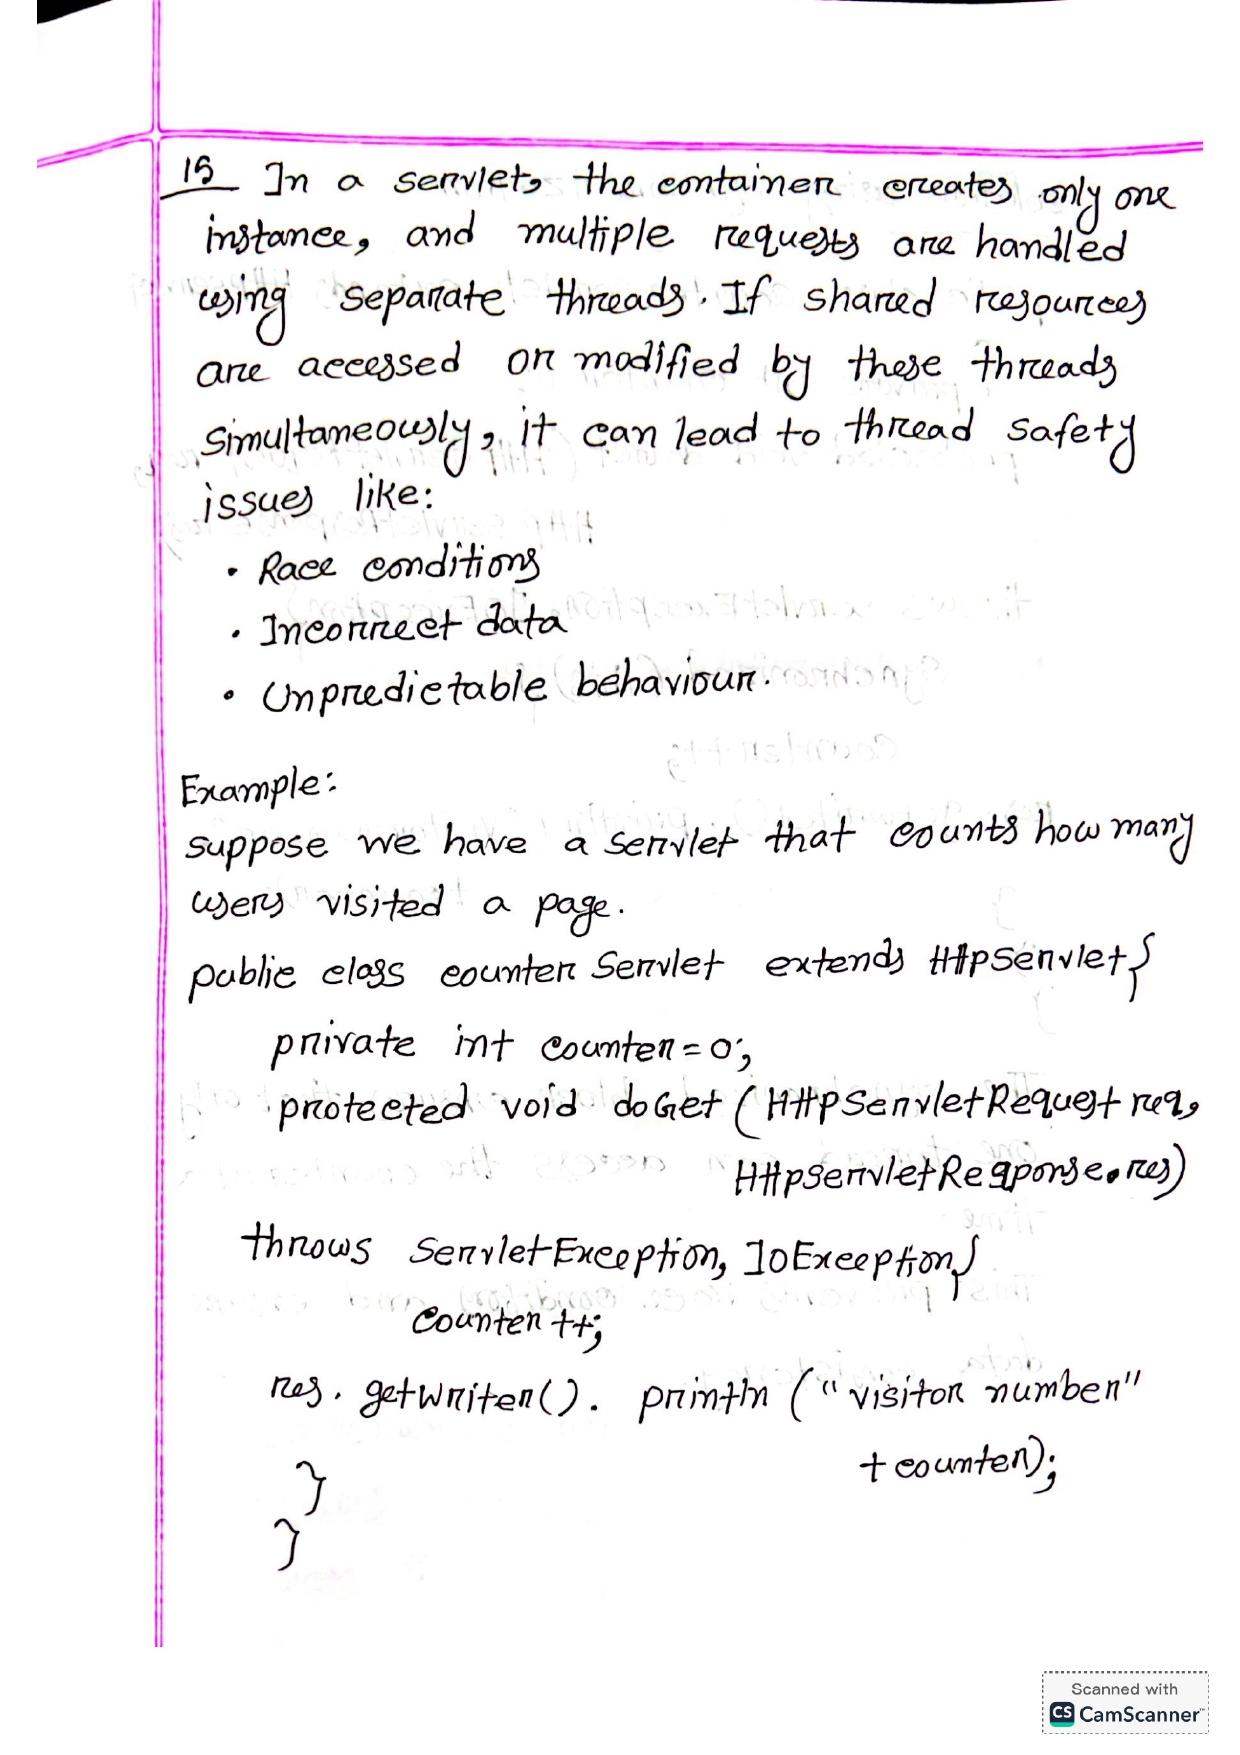 15 In a servlet, the container creates only one
instance, and multiple requests are handled
using separate threads. If shared resources
are accessed or modified by these threads
simultaneously, it can lead to thread safety
issues like:
• Race conditions
• Incorrect data
• Unpredictable behaviour.
Example:
suppose we have a servlet that counts how many
users visited a page.
public class counter Servlet extends HttpServlet{
private int counter = 0;
protected void doGet (HttpServletRequest req,
HttpServletResponse res)
throws ServletException, IoException{
counter ++;
res. getwriter(). println ("visitor number"
+ counter);
}
}
Scanned with
CS CamScanner